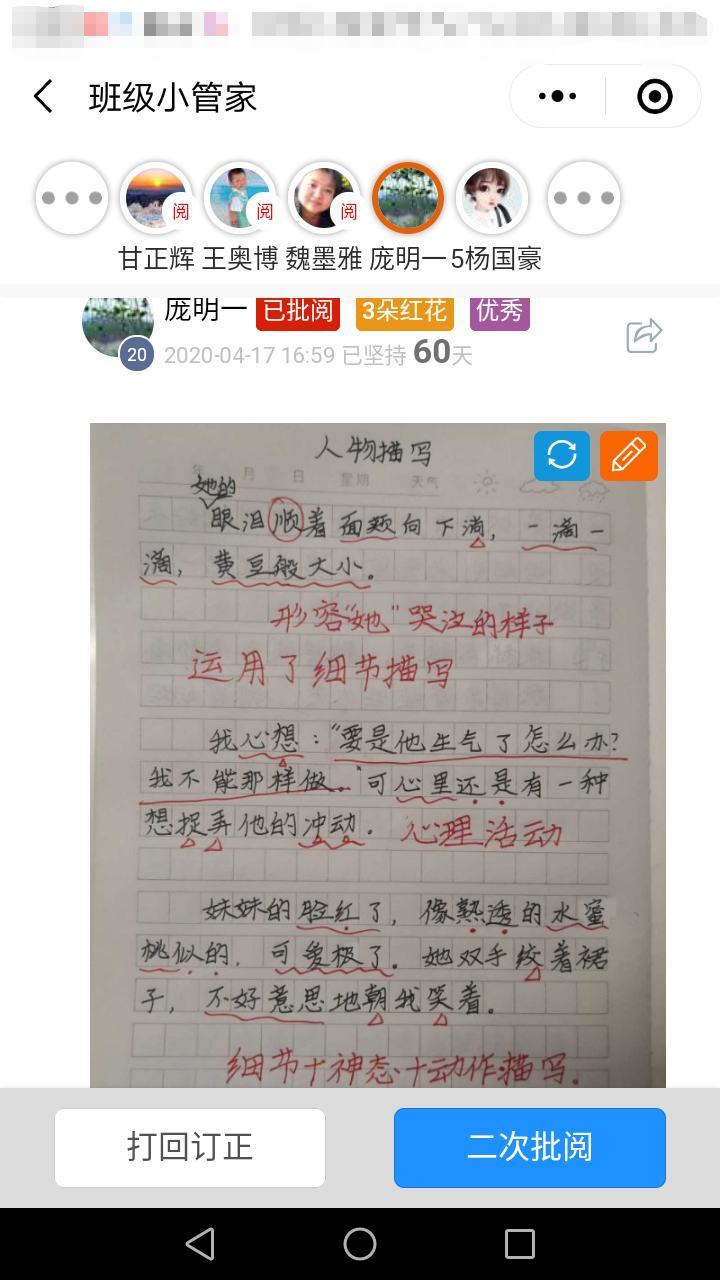 班级小管家
阅 阅 阅
甘正辉 王奥博 魏墨雅 庞明一 5杨国豪
庞明一 已批阅 3朵红花 优秀
20 2020-04-17 16:59 已坚持 60天
人物描写
年 月 日 星期 天气
她的
眼泪顺着面颊向下淌，一滴一
滴，黄豆般大小。
形容“她”哭泣的样子
运用了细节描写
我心想：“要是他生气了怎么办？
我不能那样做。”可心里还是有一种
想捉弄他的冲动。 心理活动
妹妹的脸红了，像熟透的水蜜
桃似的，可爱极了。她双手绞着裙
子，不好意思地朝我笑着。
细节+神态+动作描写。
打回订正 二次批阅